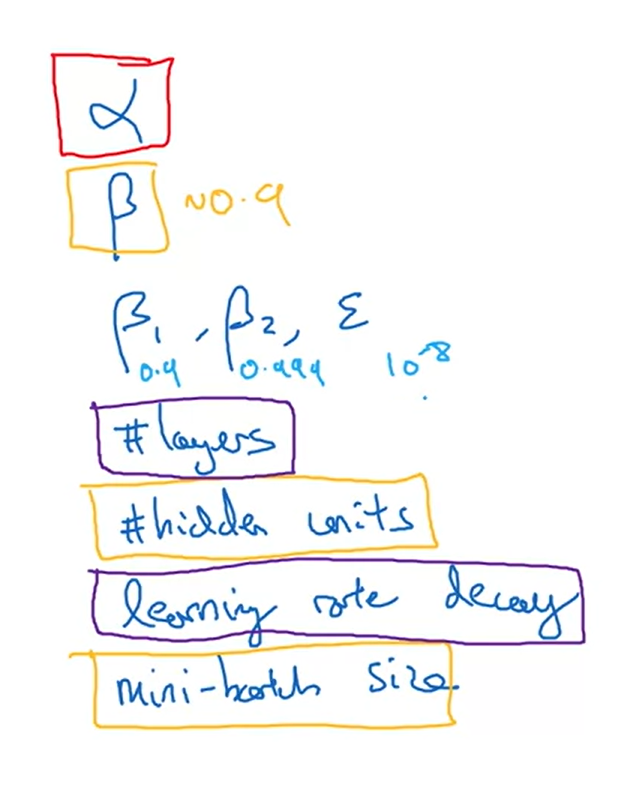 α
β ~0.9
β₁, β₂, ε
0.9 0.999 10⁻⁸
#layers
#hidden units
learning rate decay
mini-batch size.